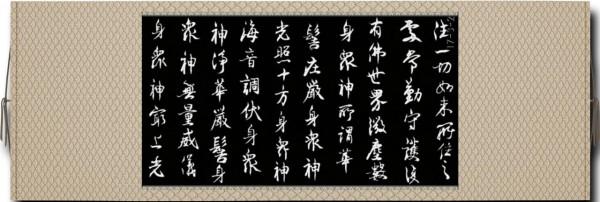 往一切如来所住之
處常勤守護復
有佛世界微塵數
身眾神所謂華
髻莊嚴身眾神
光照十方身眾神
海音調伏身眾
神淨華嚴髻身
眾神無量威儀
身眾神最上光